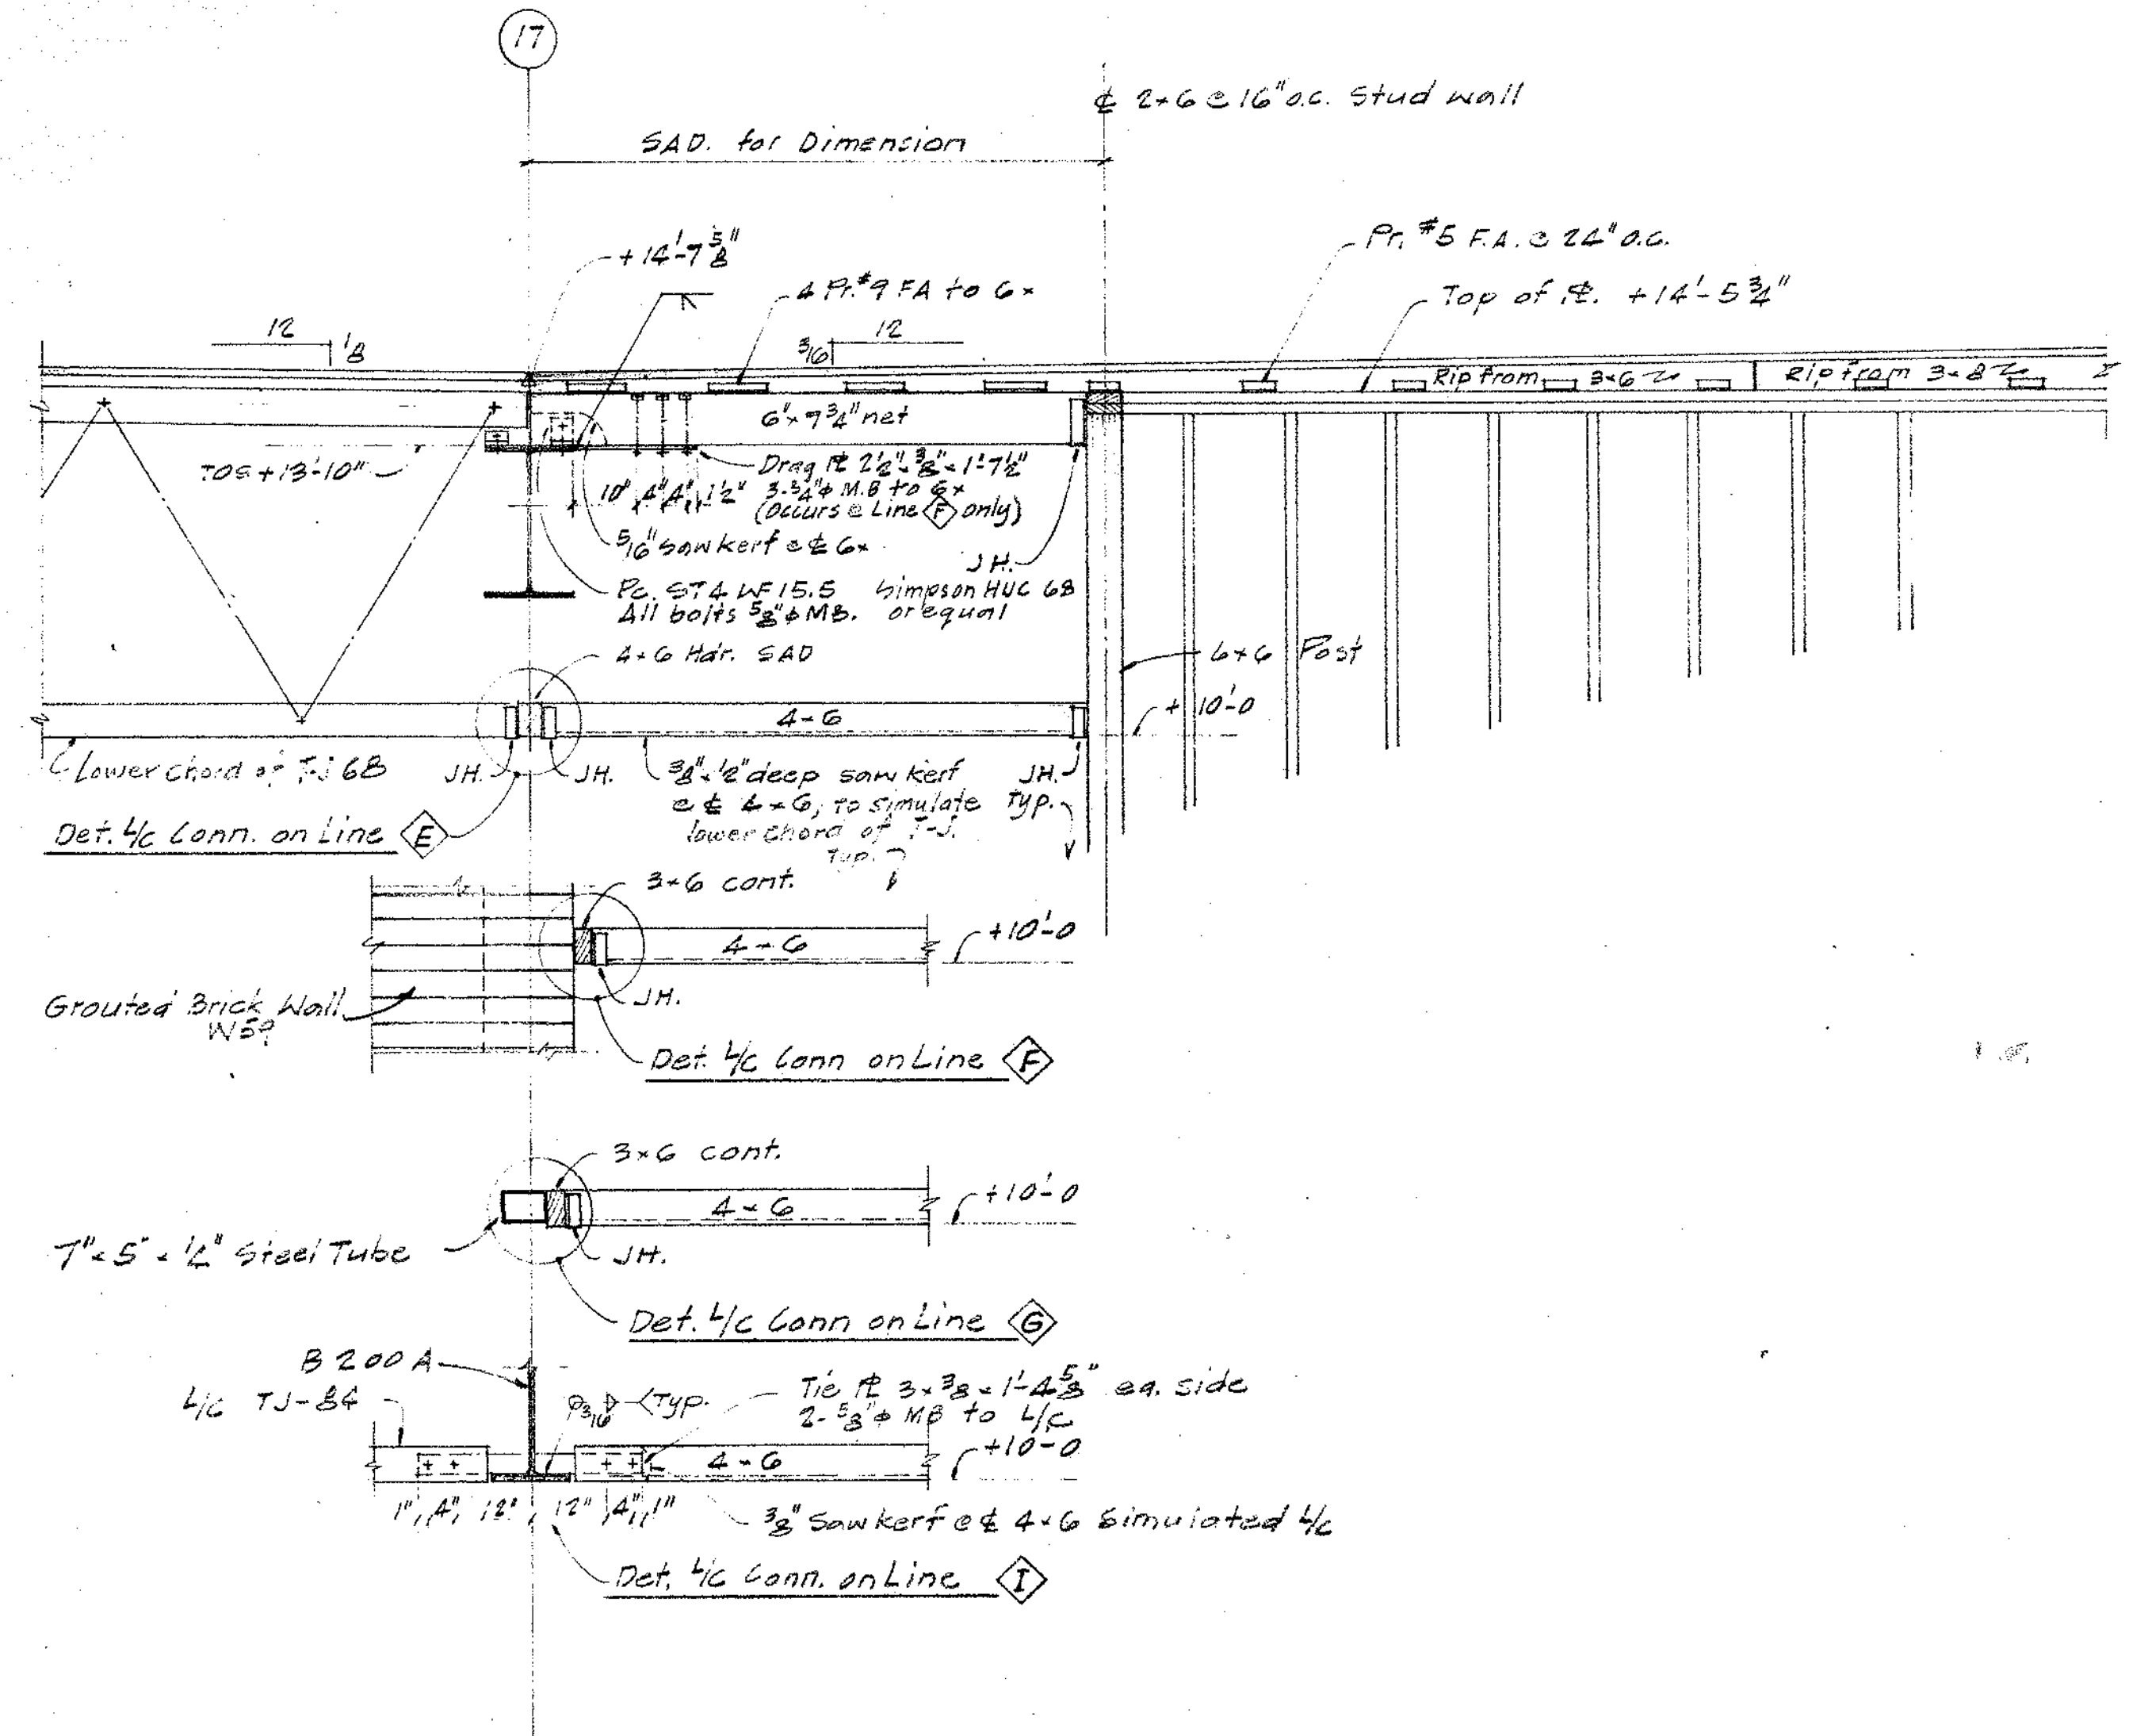 17
℄ 2×6 @ 16" o.c. Stud wall
SAD. for Dimension
+14'-7 5/8"
Pr. #5 F.A. @ 24" O.C.
4 Pr. #9 FA to 6×
Top of ℞. +14'-5 3/4"
12
1/8
3/16
12
Rip from 3×6
Rip from 3×8
6"×9 3/4" net
TOS +13'-10"
Drag ℞ 2 1/2"×3/8"×1'-7 1/2"
10", 4", 4", 1 1/2"
3-3/4"φ M.B to 6×
(Occurs @ Line F only)
5/16" sawkerf @ ℄ 6×
J.H.
Pc. ST4 WF 15.5
All bolts 5/8"φ MB.
Simpson HUC 68
or equal
4×6 Hdr. SAD
6×6 Post
4×6
+10'-0
Lower chord of T-J 68
JH.
JH.
3/8"×1/2" deep saw kerf
@ ℄ 4×6, to simulate
lower chord of T-J.
Typ.
JH.
Typ.
Det. L/c Conn. on Line E
3×6 cont.
4×6
+10'-0
Grouted Brick Wall
JH.
Det. L/c Conn on Line F
3×6 cont.
4×6
+10'-0
7"×5"×1/4" Steel Tube
JH.
Det. L/c Conn on Line G
B 200 A
L/c TJ-84
3/16
Typ.
Tie ℞ 3×3/8×1'-4 5/8" ea. side
2-5/8"φ MB to L/c
4×6
+10'-0
1", 4", 12", 12", 4", 1"
3/8" Sawkerf @ ℄ 4×6 Simulated L/c
Det. L/c Conn. on Line I